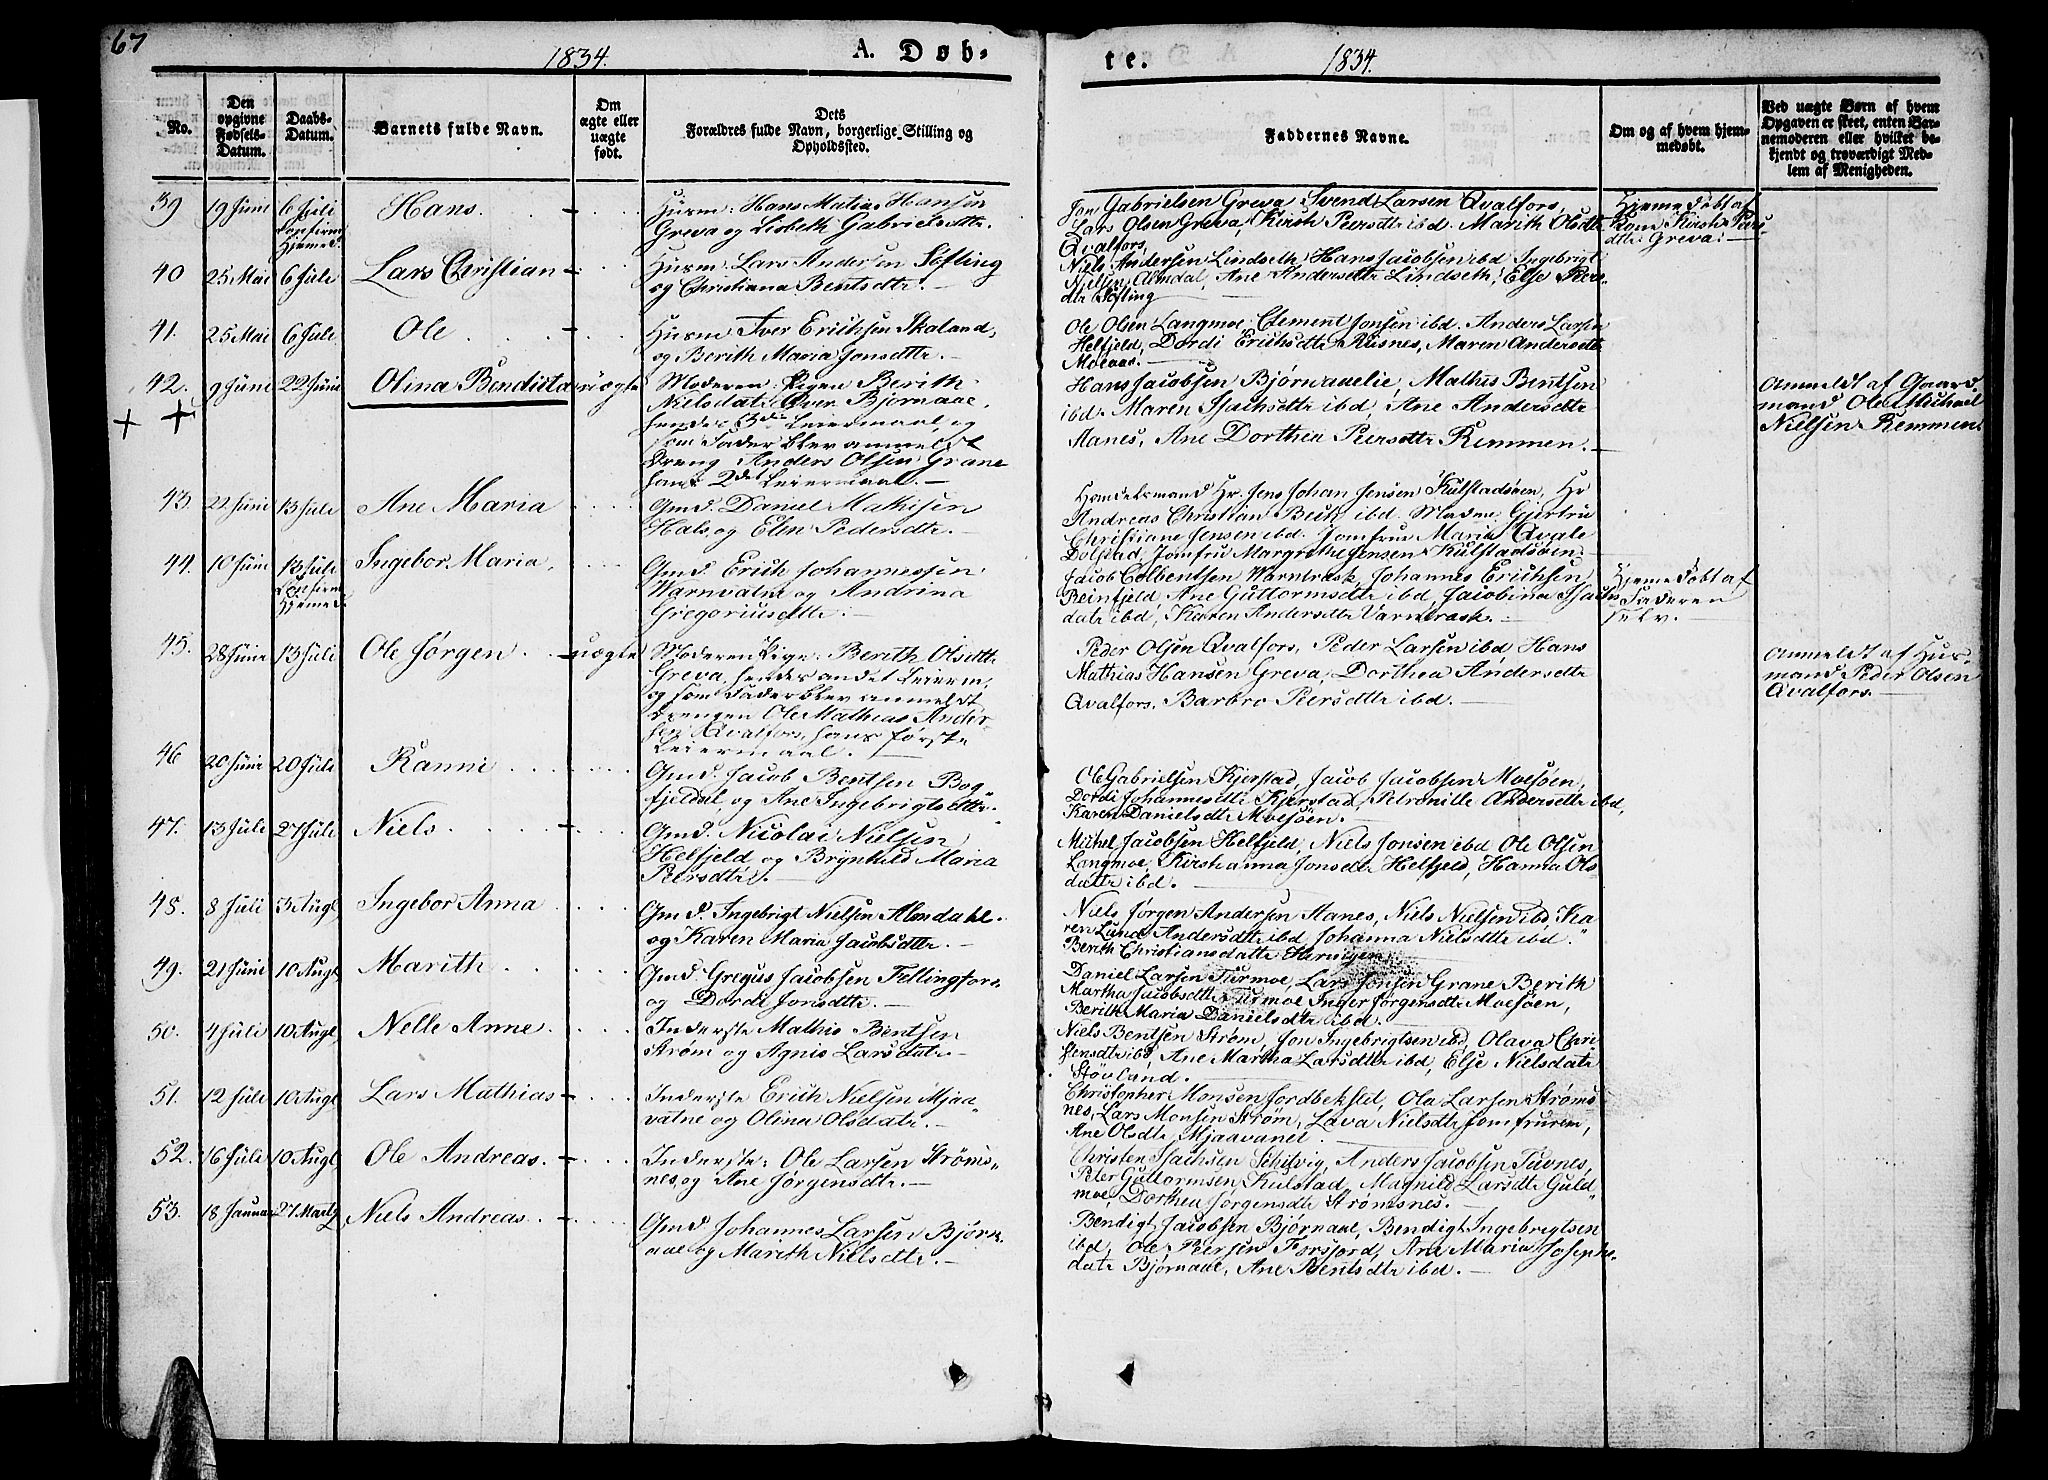 67
1834.
A. Døb-
te.
1834.
No.
Den opgivne Fødsels-Datum.
Daabs-Datum.
Barnets fulde Navn.
Om ægte eller uægte født.
Dets Forældres fulde Navn, borgerlige Stilling og Opholdssted.
Faddernes Navne.
Om og af hvem hjem-medøbt.
Ved uægte Børn af hvem Opgaven er skeet, enten Bar-nemoderen eller hvilket be-kjendt og troværdigt Med-lem af Menigheden.
39 19 Juni 6 Juli
Confirm
Hjemed.
Hans.
Husm: Hans Matias Hansen
Greva og Lisbeth Gabrielsdtr.
Jon Gabrielsen Greva, Svend Larsen Qvalfors,
Lars Olsen Greva, Kirsth Peersdtr ibd. Marith Olsdtr
Qvalfors,
Hjemedøbt af
Kone Kirsth Peers
dtr Greva.
40 25 Mai 6 Juli Lars Christian
Husm: Lars Andersen Søfting
og Christiana Bentsdtr.
Niels Andersen Lindseth, Hans Jacobsen ibd Ingebrigt
Nielsen Almdal, Ane Andersdtr Lindseth, Else Peers
dtr Søfting
41. 25 Mai 6 Juli Ole
Husm Iver Erichsen Skaland,
og Berith Maria Jonsdtr.
Ole Olsen Langmoe, Clement Jonsen ibd. Anders Larsen
Helfjeld, Dordi Erichsdtr Røsnes, Maren Andersdtr
Moeaas.
42. 9 Juni 22 Juni Olina Bendicta uægte
Moderen: Pigen Berith
Nielsdatr Bjørnaae,
hendes 3de Leiermaal, og
som Fader blev anmeldt
Dreng Anders Olsen Grane
hans 2det Leiermaal.
Hans Jacobsen Bjørnaaelie, Mathis Bentsen
ibd. Maren Isachsdtr ibd, Ane Andersdtr
Aanes, Ane Dorthea Peersdtr Remmen.
Anmeldt af Gaard
mand Ole Michael
Nielsen Remmen.
43. 22 Juni 13 Juli Ane Maria
Gmd. Daniel Mathisen
Hals, og Elen Pedersdtr.
Handelsmand Hr. Jens Johan Jensen Kulstadsøen, Hr
Andreas Christian Bech ibd. Madm Gjertru
Christiane Jensen ibd. Jomfrue Maria Qvale
Dolstad, Jomfru Margrethe Jensen Kulstadsøen.
44. 10 Juni 13 Juli
Confirm
Hjemed.
Ingebor Maria,
Gmd. Erich Johannessen
Varnvatne og Andrina
Gregoriusdtr.
Jacob Colbentsen Varntræsk, Johannes Erichsen
Reinfjeld, Ane Guttormsdtr ibd, Jacobina Isachs
datr ibd, Karen Andersdtr Varntræsk.
Hjemedøbt af
Faderen
selv.
45. 28 Juni 13 Juli Ole Jørgen uægte
Moderen Pige: Berith Olsdtr
Greva, hendes andet Leierm.
og som Fader blev anmeldt
Drengen Ole Mathias Ander
sen Qvalfors, hans første
Leiermaal.
Peder Olsen Qvalfors, Peder Larsen ibd Hans
Mathias Hansen Greva, Dorthea Andersdtr
Qvalfors. Barbro Peersdtr ibd.
Anmeldt af Hus-
mand Peder Olsen
Qvalfors.
46 20 Juni 20 Juli Ranni
Gmd. Jacob Bentsen Bog
fjeldal, og Ane Ingebrigtsdtr.
Ole Gabrielsen Kjerstad, Jacob Jacobsen Moesøen,
Dordi Johannesdtr Kjerstad, Petronille Andersdtr ibd,
Karen Danielsdtr Moesøen.
47. 13 Juli 27 Juli Niels
Gmd. Nicolai Nielsen
Helfjeld og Brynhild Maria
Peersdtr.
Michel Jacobsen Helfjeld, Niels Jonsen ibd Ole Olsen
Langmoe, Kirstianna Jonsdtr Helfjeld, Hanna Ols
datr ibd.
48. 8 Juli 3 Augt, Ingebor Anna
Gmd. Ingebrigt Nielsen Almdahl.
og Karen Maria Jacobsdtr.
Niels Jørgen Andersen Aanes, Niels Nielsen ibd, Ka
ren Lund Andersdtr ibd Johanna Nielsdtr ibd.
Berith Christiansdatr
49. 21 Juni 10 Augt, Marith
Gmd. Gregus Jacobsen Fellingfors
og Dordi Jonsdtr.
Daniel Larsen Turmoe, Lars Jonsen Grane Berith
Martha Jacobsdtr Turmoe Inger Jørgensdtr Moesøen,
Berith Maria Danielsdtr ibd.
50. 4 Juli 10 Augt, Nelle Anne
Inderste Mathis Bentsen
Strøm og Agnis Larsdatr.
Niels Bentsen Strøm, Jon Ingebrigtsen ibd, Olava Chri
stensdtr ibd, Ane Martha Larsdtr ibd, Else Nielsdatr
Støvland.
51. 12 Juli 10 Augt Lars Mathias
Inderste Erich Nielsen Mjaa
vatne og Olina Olsdatr.
Christopher Monsen Jordbekhed, Ola Larsen Strøms
nes, Lars Monsen Strøm, Lava Nielsdtr
Ane Olsdtr Mjaavanet.
52. 16 Juli 10 Augt, Ole Andreas.
Inderste: Ole Larsen Strøms-
nes, og Ane Jørgensdtr.
Christen Isachsen Schifvig, Anders Jacobsen Tuvnes,
Peter Guttormsen Kulstad, Magnild Larsdtr Guld
moe, Dorthea Jørgensdtr Strømsnes.
53. 18 Januar 27 Marts Niels Andreas.
Gmd. Johannes Larsen Bjørn
aae og Marith Nielsdtr.
Bendigt Jacobsen Bjørnaae, Bendigt Ingebrigtsen
ibd, Ole Peersen Forsjord, Ane Maria Josephs-
datr Bjørnaae, Ane Bentsdtr ibd.